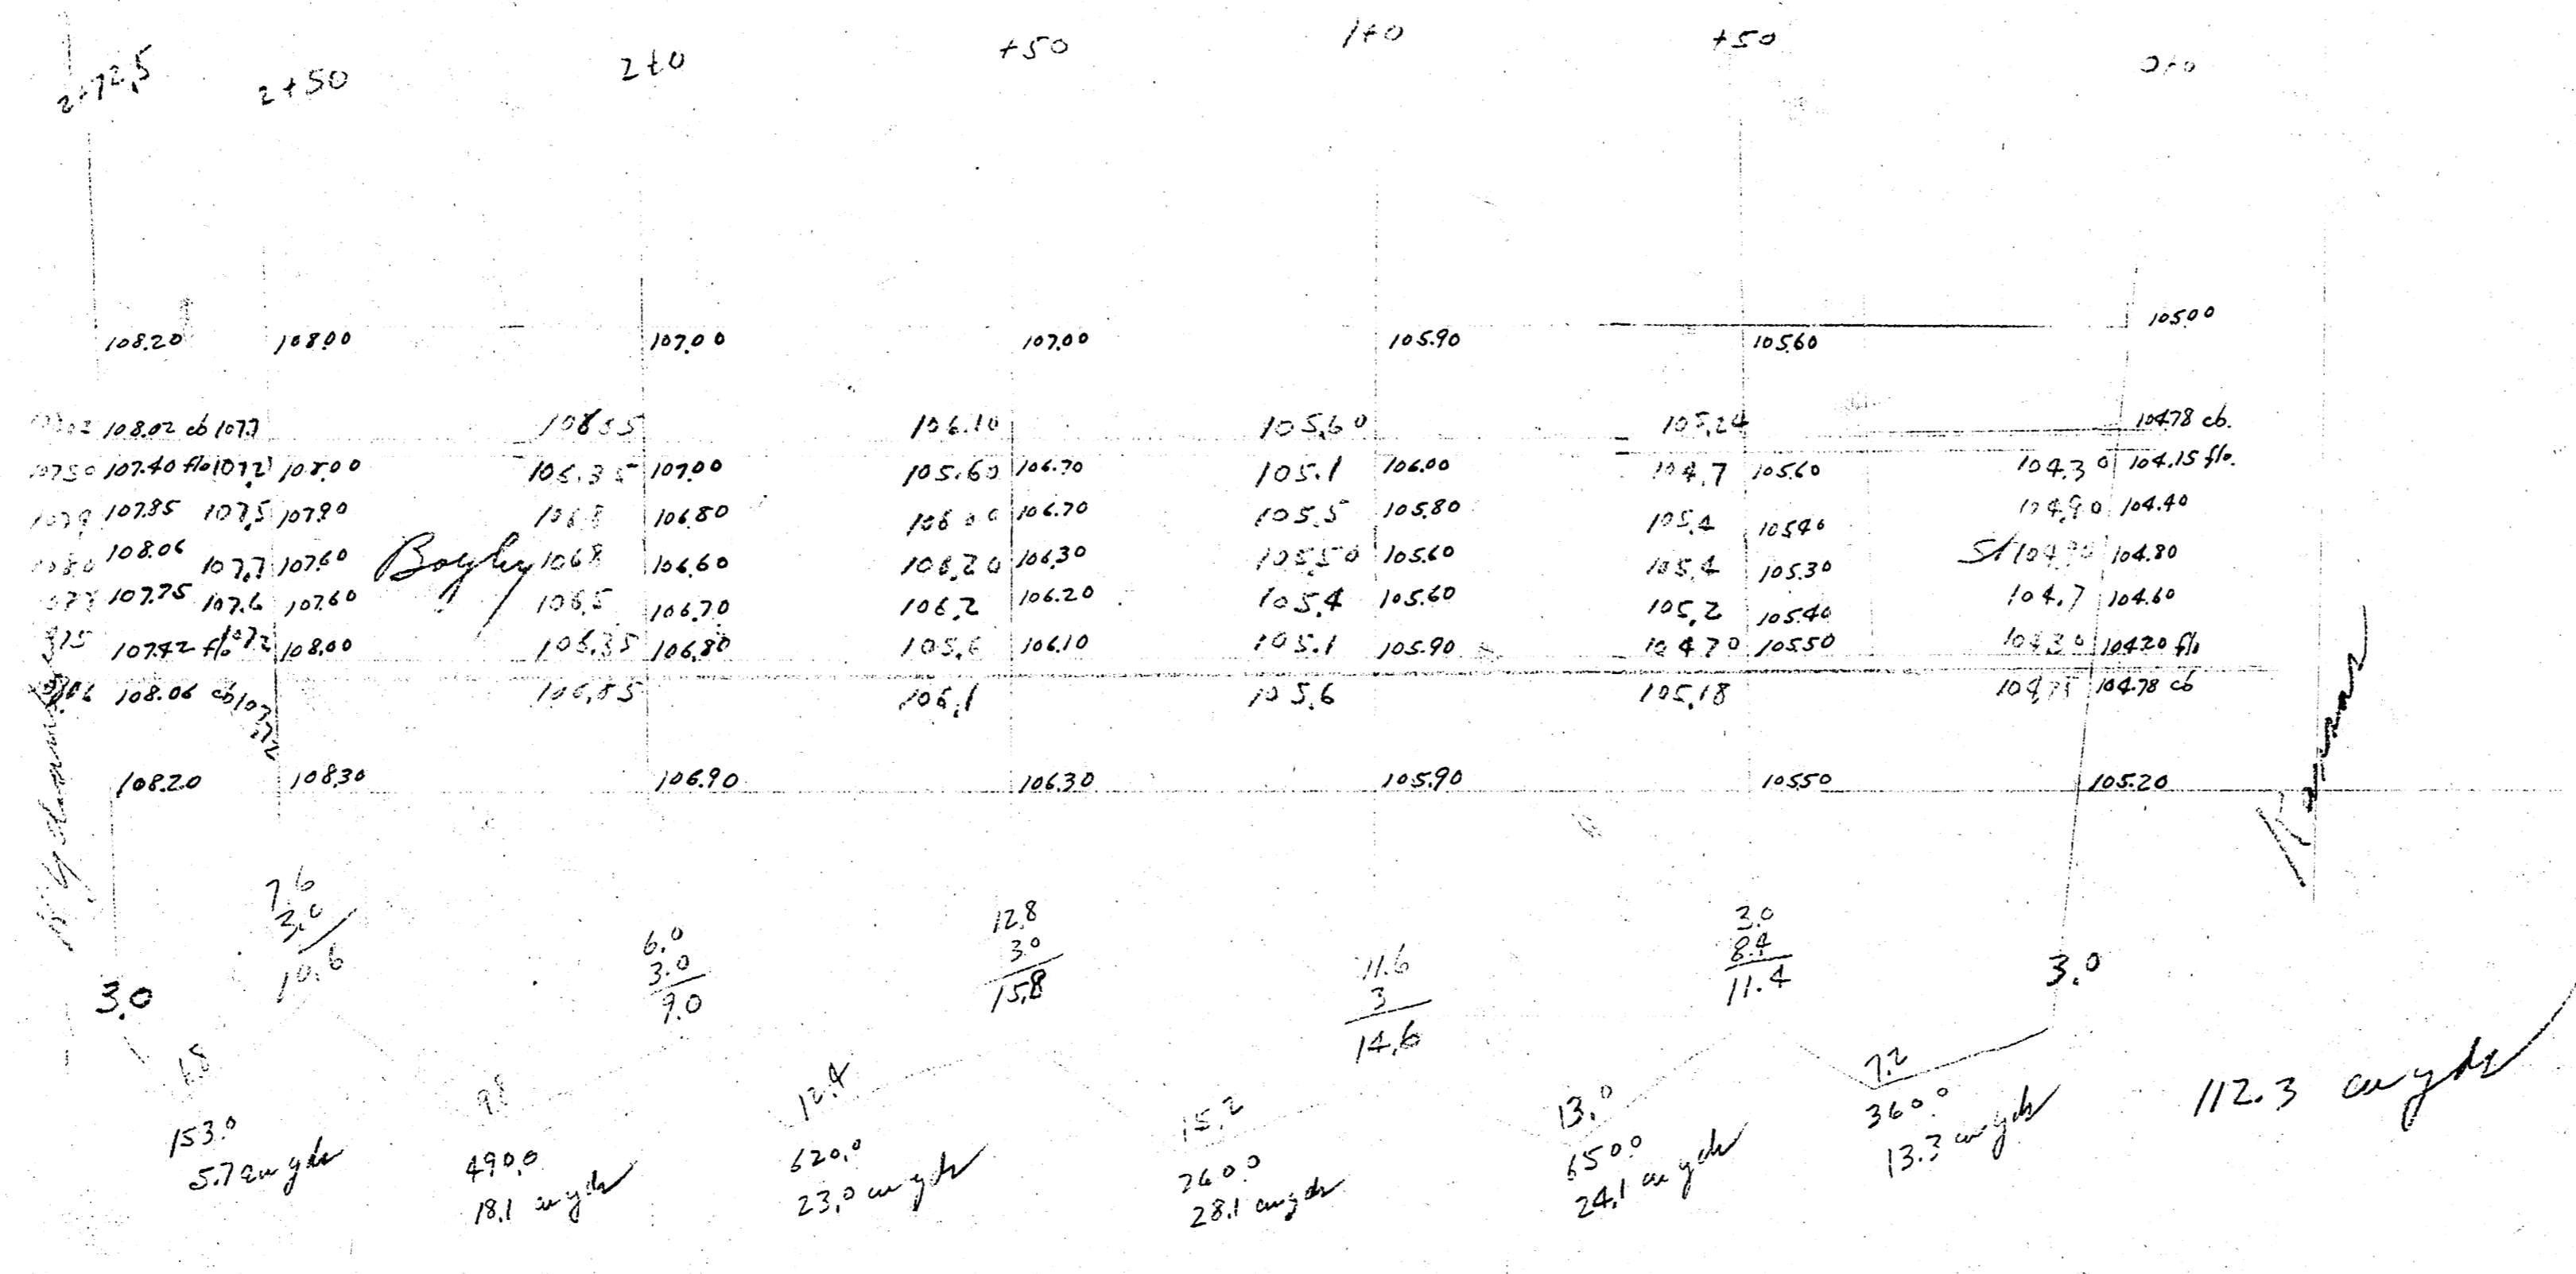 2+72.5 2+50 2+0 +50 1+0 +50 0+0
108.20 108.00 107.00 107.00 105.90 105.60 105.00
108.02 cb 107.7 106.85 106.10 105.60 105.24 104.78 cb.
107.50 107.40 flo 107.2 108.00 106.35 107.00 105.60 106.70 105.1 106.00 104.7 105.60 104.30 104.15 flo.
107.9 107.85 107.5 107.90 106.8 106.80 106.00 106.70 105.5 105.80 105.4 105.40 104.90 104.40
108.0 108.06 107.7 107.60 106.8 106.60 106.20 106.30 105.50 105.60 105.4 105.30 St 104.90 104.80
107.75 107.6 107.60 106.5 106.70 106.2 106.20 105.4 105.60 105.2 105.40 104.7 104.60
107.42 flo 107.2 108.00 106.35 106.80 105.6 106.10 105.1 105.90 104.70 105.50 104.30 104.20 flo
108.06 cb 107.72 106.85 106.1 105.6 105.18 104.75 104.78 cb
108.20 108.30 106.90 106.30 105.90 105.50 105.20
7.6 6.0 12.8 11.6 3.0
3.0 3.0 3.0 3 8.4
3.0 10.6 9.0 15.8 14.6 11.4 3.0
6.8 9.8 12.4 15.2 13.0 7.2
153.0 490.0 620.0 760.0 650.0 360.0
5.7 cu yds 18.1 cu yds 23.0 cu yds 28.1 cu yds 24.1 cu yds 13.3 cu yds 112.3 cu yds